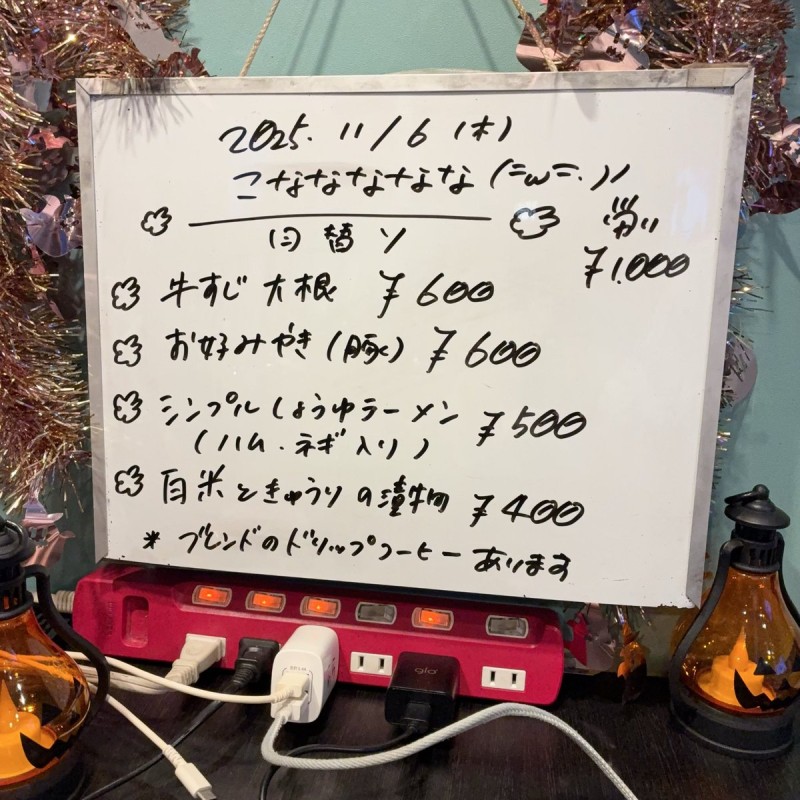 2025. 11/6 (木)
こなななななな (=ω=.)ノ
日替り
¥1,000
牛すじ大根 ¥600
お好みやき(豚) ¥600
シンプルしょうゆラーメン ¥500
(ハム・ネギ入り)
白米ときゅうりの漬物 ¥400
* ブレンドのドリップコーヒーあります
glo